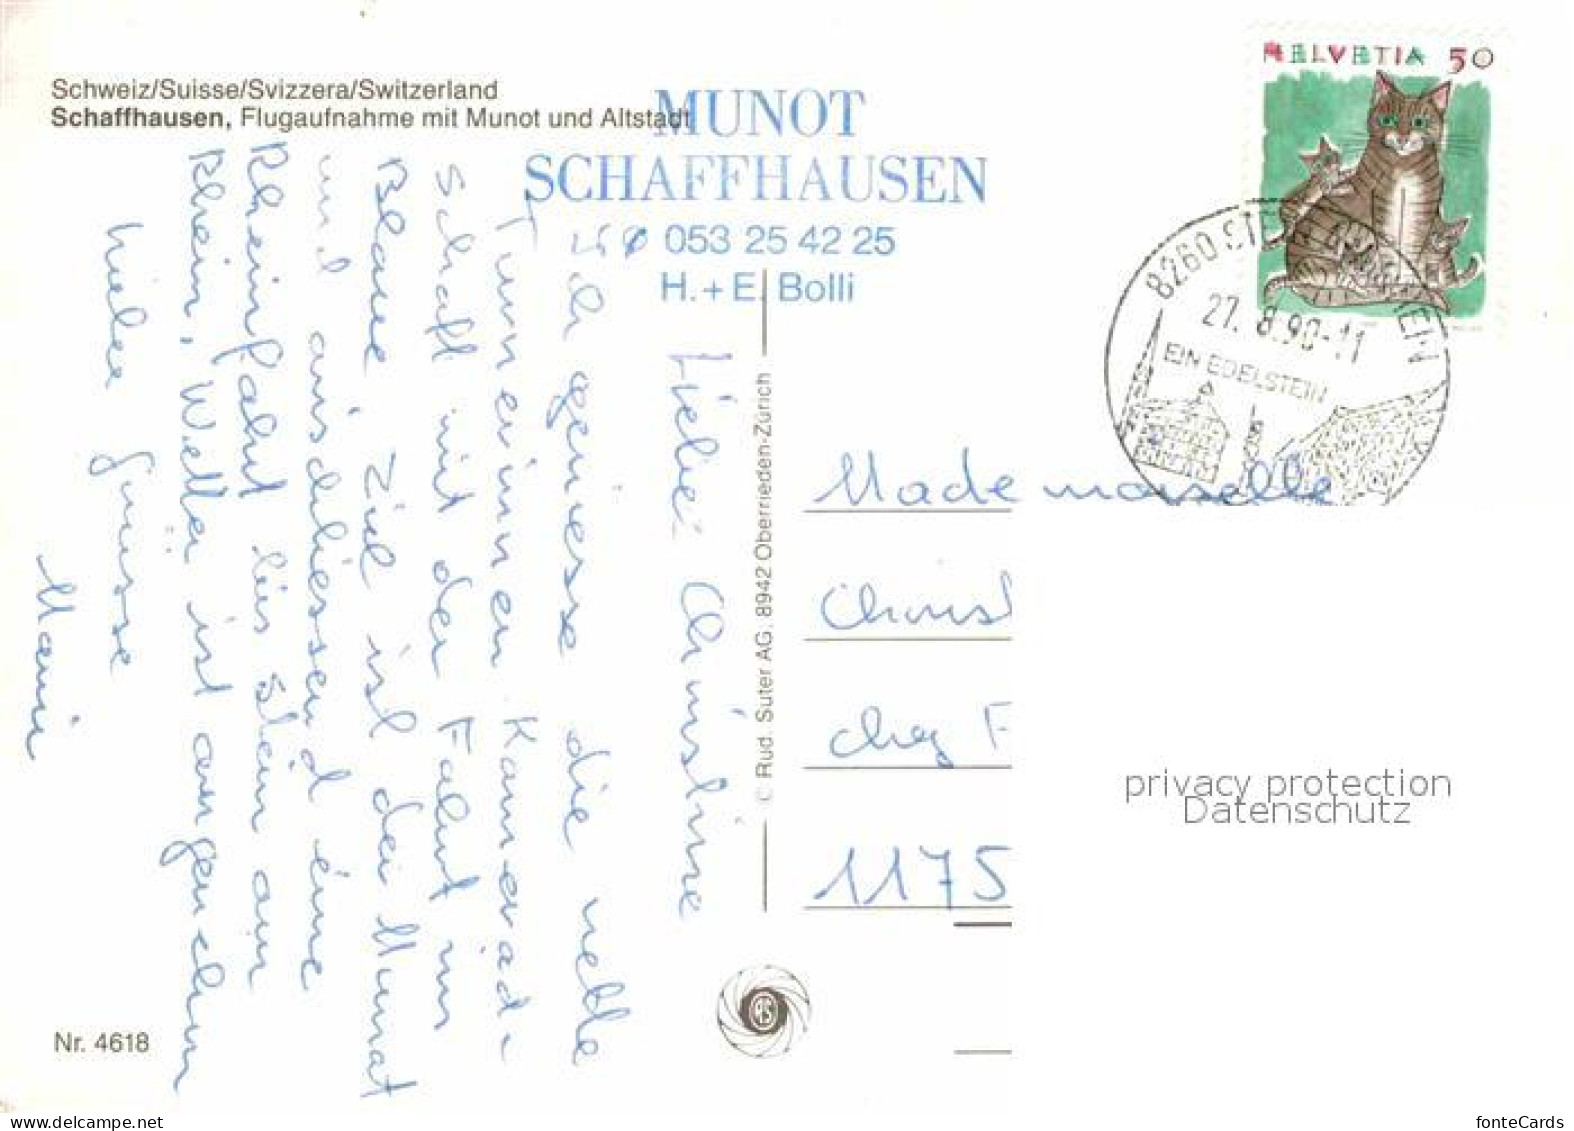 Schweiz/Suisse/Svizzera/Switzerland
Schaffhausen, Flugaufnahme mit Munot und Altstadt
MUNOT
SCHAFFHAUSEN
053 25 42 25
H. + E. Bolli
HELVETIA 50
8260 STEIN AM RHEIN
27. 8. 90-11
EIN EDELSTEIN
Liebe Christine
Ich geniesse die nette
Turnerinnen Kamerad-
schaft mit der Fahrt ins
Blaue Ziel ist der Munot
und anschliessend eine
Rheinfahrt bis Stein am
Rhein, Wetter ist angenehm
Viele Grüsse
Mami
© Rud. Suter AG. 8942 Oberrieden-Zürich
Mademoiselle
Christ
chez F
1175
RS
privacy protection
Datenschutz
Nr. 4618
www.delcampe.net
fonteCards